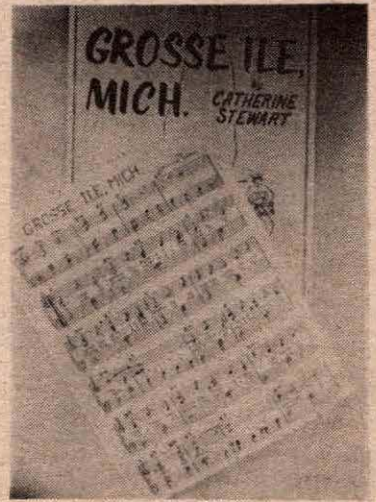 GROSSE ILE,
MICH.
by
CATHERINE
STEWART
GROSSE ILE, MICH